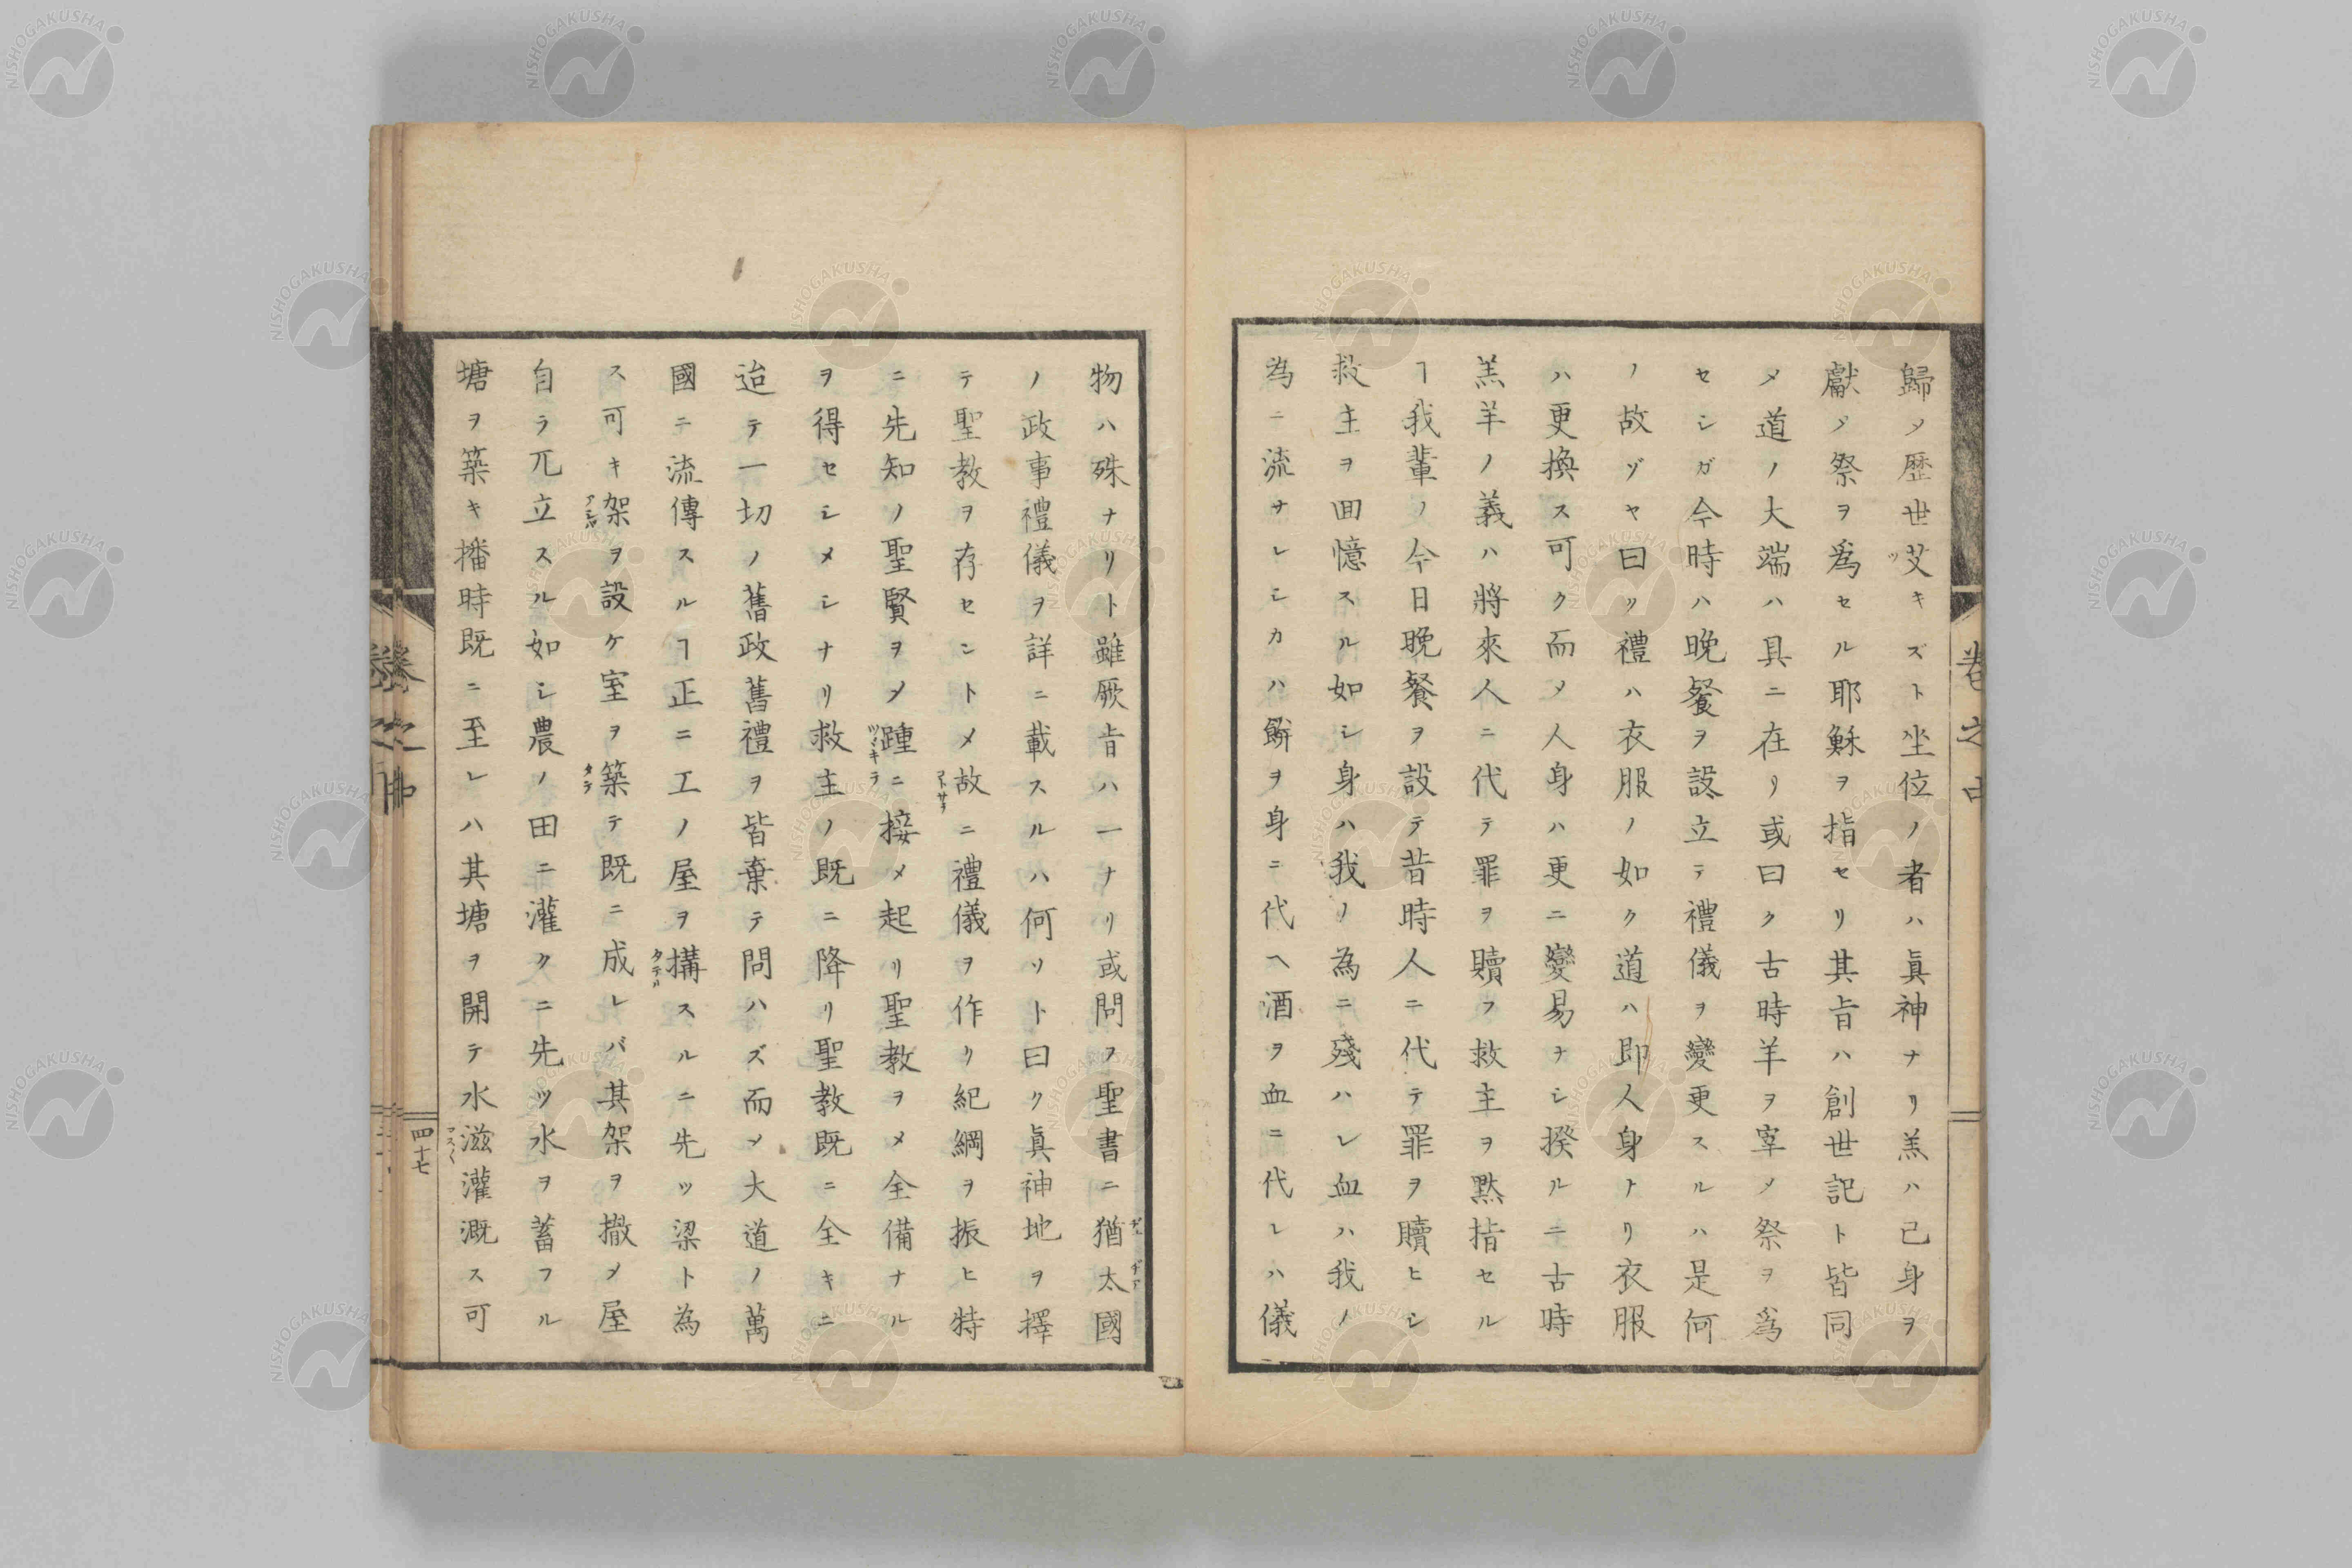 歸メ歷世艾キズト坐位ノ者ハ眞神ナリ羔ハ己身ヲ
獻メ祭ヲ爲セル耶穌ヲ指セリ其旨ハ創世記ト皆同
メ道ノ大端ハ具ニ在リ或曰ク古時羊ヲ宰メ祭ヲ爲
セシガ今時ハ晚餐ヲ設立テ禮儀ヲ變更スルハ是何
ノ故ゾヤ曰ク禮ハ衣服ノ如ク道ハ即人身ナリ衣服
ハ更換ス可ク而メ人身ハ更ニ變易ナシ揆ルニ古時
羔羊ノ義ハ將來人ニ代テ罪ヲ贖フ救主ヲ黙指セル
ヿ我輩ノ今日晚餐ヲ設テ昔時人ニ代テ罪ヲ贖ヒシ
救主ヲ囬憶スル如シ身ハ我ノ為ニ殘ハレ血ハ我ノ
為ニ流サレシカハ餅ヲ身ニ代ヘ酒ヲ血ニ代レハ儀
物ハ殊ナリト雖厥旨ハ一ナリ或問フ聖書ニ猶太國
ノ政事禮儀ヲ詳ニ載スルハ何ソト曰ク眞神地ヲ擇
テ聖教ヲ存センドメ故ニ禮儀ヲ作リ紀綱ヲ振ヒ特
ニ先知ノ聖賢ヲメ踵ニ接メ起リ聖教ヲメ全備ナル
ヲ得セシメシナリ救主ノ既ニ降リ聖教既ニ全キニ
迨テ一切ノ舊政舊禮ヲ皆棄テ問ハズ而メ大道ノ萬
國ニ流傳スルヿ正ニ工ノ屋ヲ構スルニ先ツ梁ト為
ス可キ架ヲ設ケ室ヲ築テ既ニ成レバ其架ヲ撤メ屋
自ラ兀立スル如シ農ノ田ニ灌クニ先ツ水ヲ蓄フル
塘ヲ築キ播時既ニ至レハ其塘ヲ開テ水滋灌溉ス可
四十七